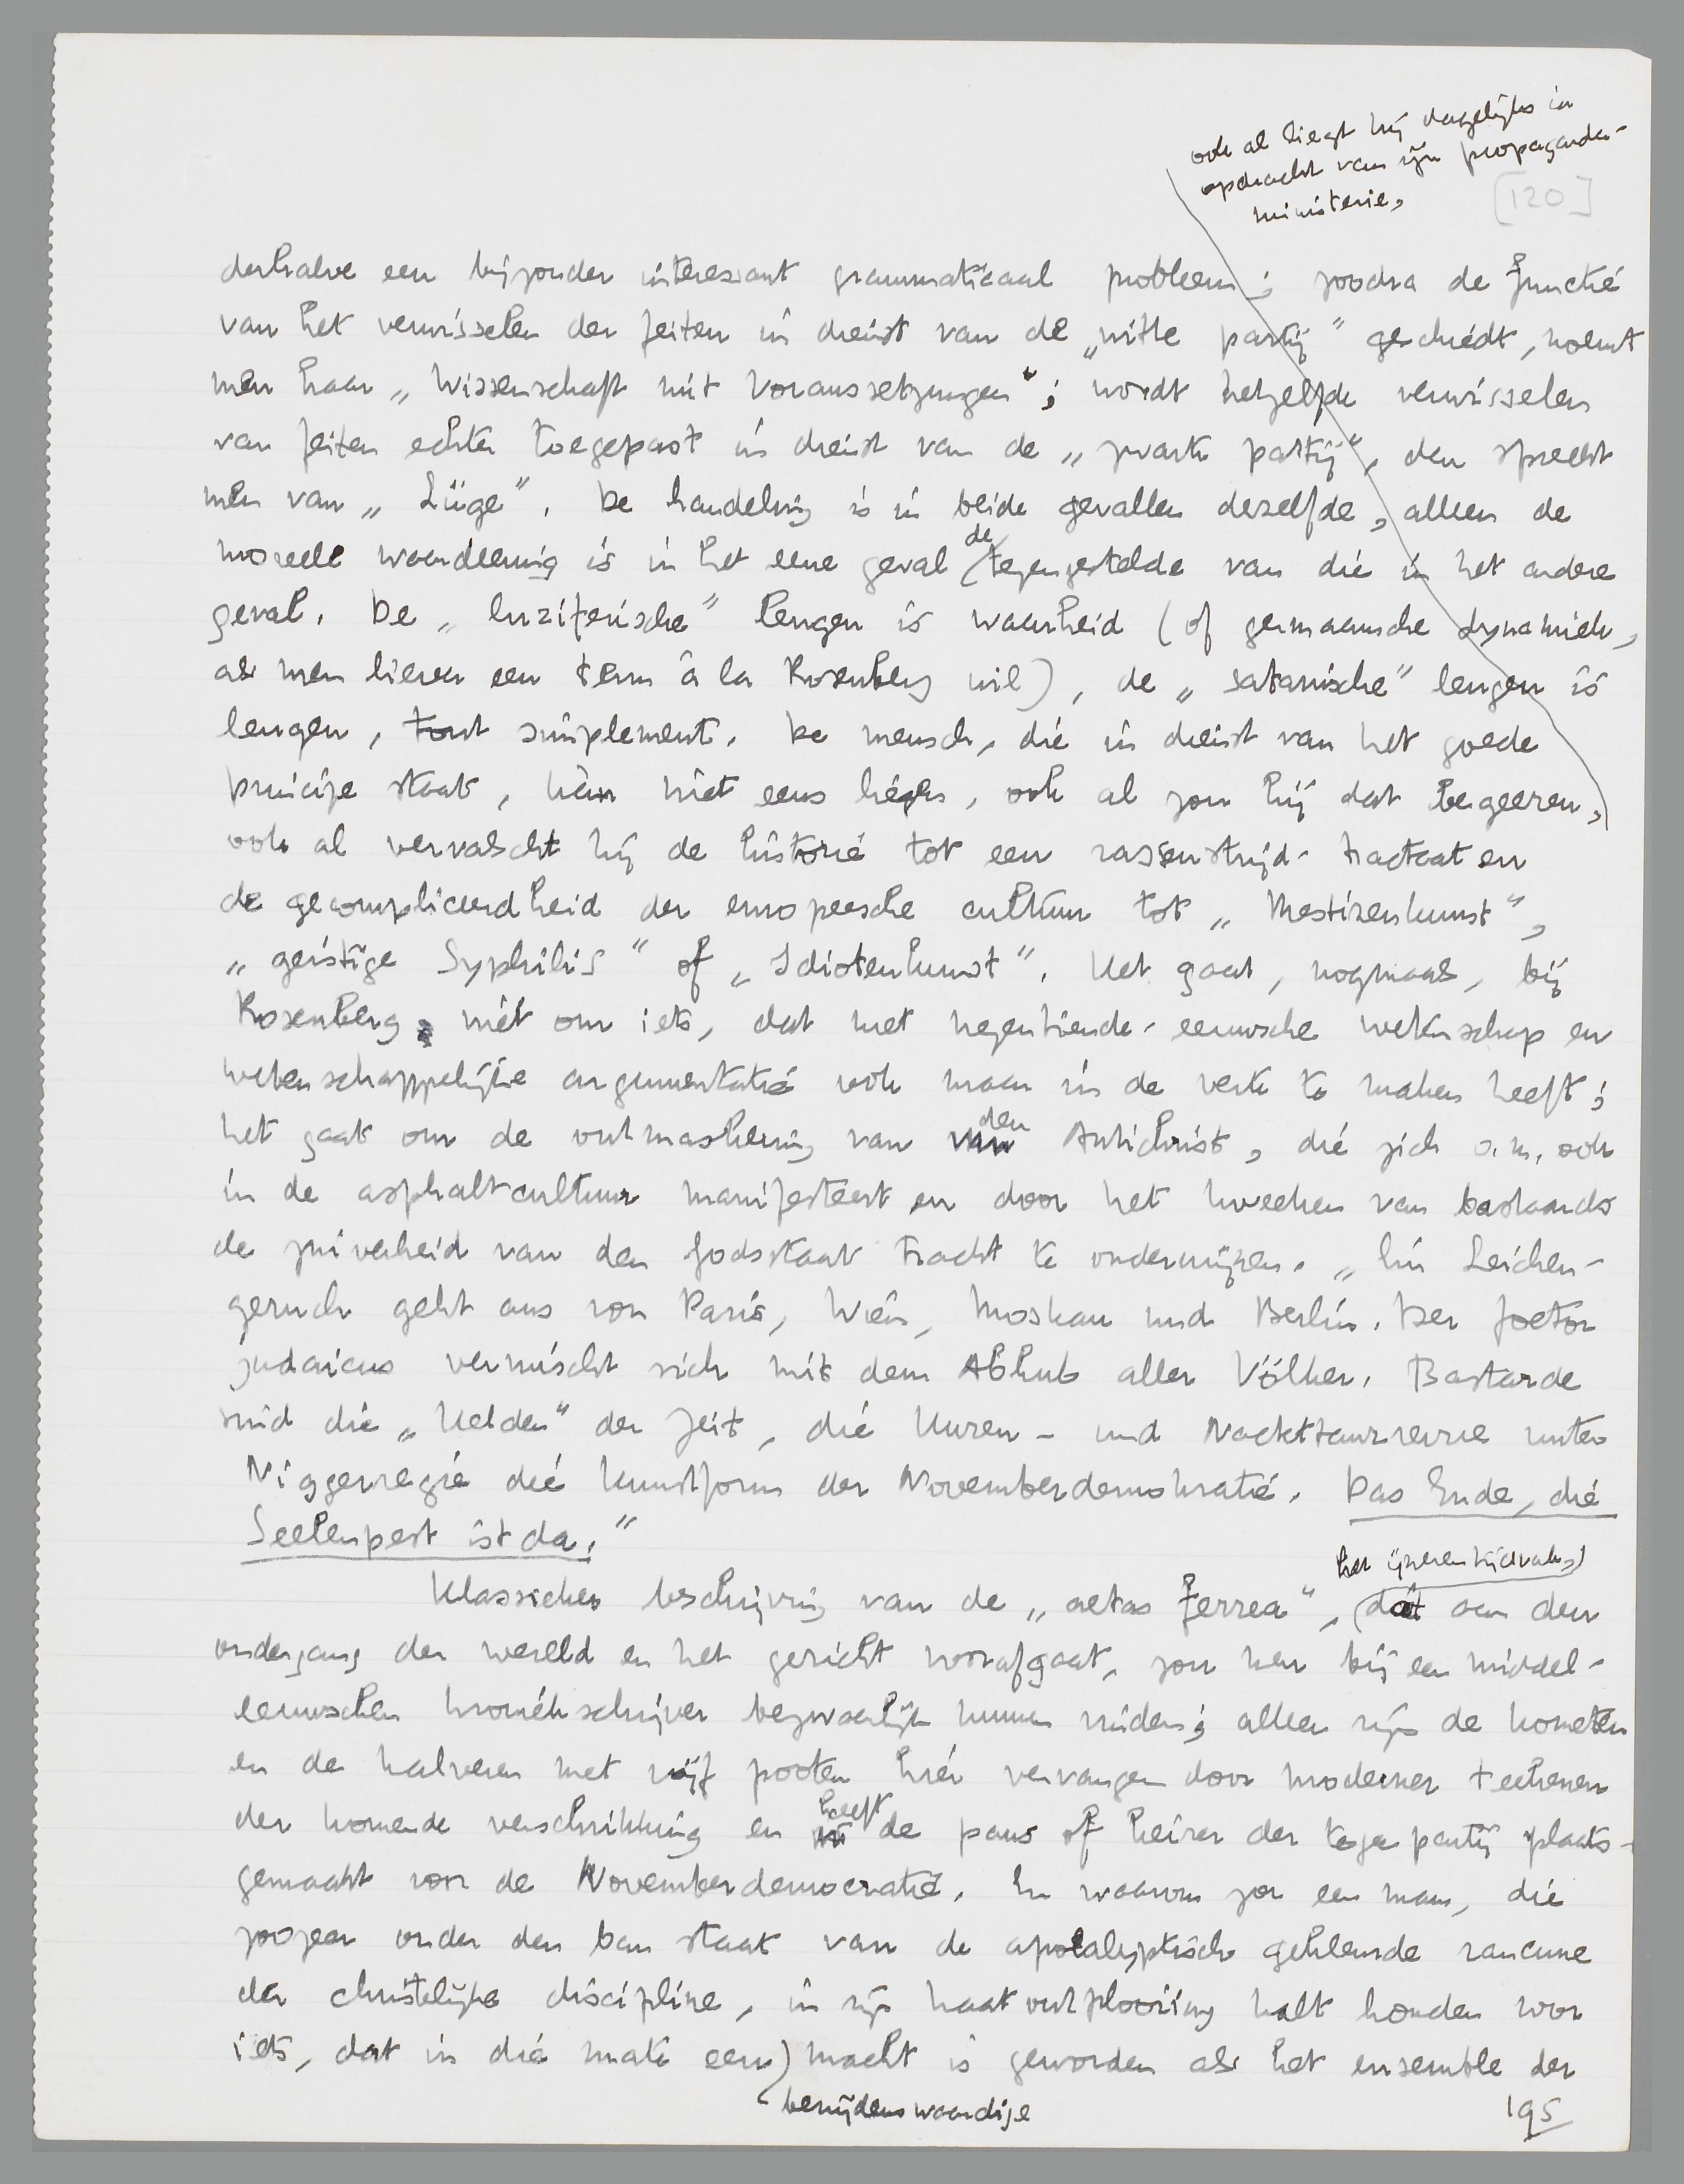 ook al liegt hij dagelijks in
opdracht van zijn propaganda-
ministerie,
[120]
derhalve een bijzonder interessant grammaticaal probleem; zoodra de functie
van het verwisselen der feiten in dienst van de „witte partij” geschiedt, noemt
men haar „Wissenschaft mit Voraussetzungen”; wordt hetzelfde verwisselen
van feiten echter toegepast in dienst van de „zwarte partij”, dan spreekt
men van „Lüge”. De handeling is in beide gevallen dezelfde, alleen de
de
moreele waardeering is in het eene geval tegengestelde van die in het andere
geval. De „luziferische” leugen is waarheid (of germaansche dynamiek,
als men liever een term à la Rosenberg wil), de „satanische” leugen is
leugen, tout simplement. De mensch, die in dienst van het goede
principe staat, kàn niet eens liegen, ook al zou hij dat begeeren,
ook al vervalscht hij de historie tot een rassenstrijd-tractaat en
de gecompliceerdheid der europeesche cultuur tot „Mestizenkunst”,
„geistige Syphilis” of „Idiotenkunst”. Het gaat, nogmaals, bij
Rosenberg niet om iets, dat met negentiende-eeuwsche wetenschap en
wetenschappelijke argumentatie ook maar in de verte te maken heeft;
den
het gaat om de ontmaskering van Antichrist, die zich o.m. ook
in de asphaltcultuur manifesteert en door het kweeken van bastaards
de zuiverheid van den Godsstaat tracht te ondermijnen. „Ein Leichen-
geruch geht aus von Paris, Wien, Moskau und Berlin. Der foetor
judaicus vermischt sich mit dem Abhub aller Völker. Bastarde
sind die „Helden” der Zeit, die Huren- und Nackttanzrevue unter
Niggerregie die Kunstform der Novemberdemokratie. Das Ende, die
Seelenpest ist da.”
het ijzeren tijdvak,
Klassieker beschrijving van de „aetas ferrea”, dat aan den
ondergang der wereld en het gericht voorafgaat, zou men bij een middel-
eeuwschen kroniekschrijver bezwaarlijk kunnen vinden; alleen zijn de kometen
en de kalveren met vijf pooten hier vervangen door moderner teekenen
heeft
der komende verschrikking en de paus of keizer der tegenpartij plaats-
gemaakt voor de Novemberdemocratie. En waarom zou een man, die
zoozeer onder den ban staat van de apocalyptisch gekleurde rancune
der christelijke discipline, in zijn haatontplooiing halt houden voor
iets, dat in die mate een macht is geworden als het ensemble der
benijdenswaardige
195